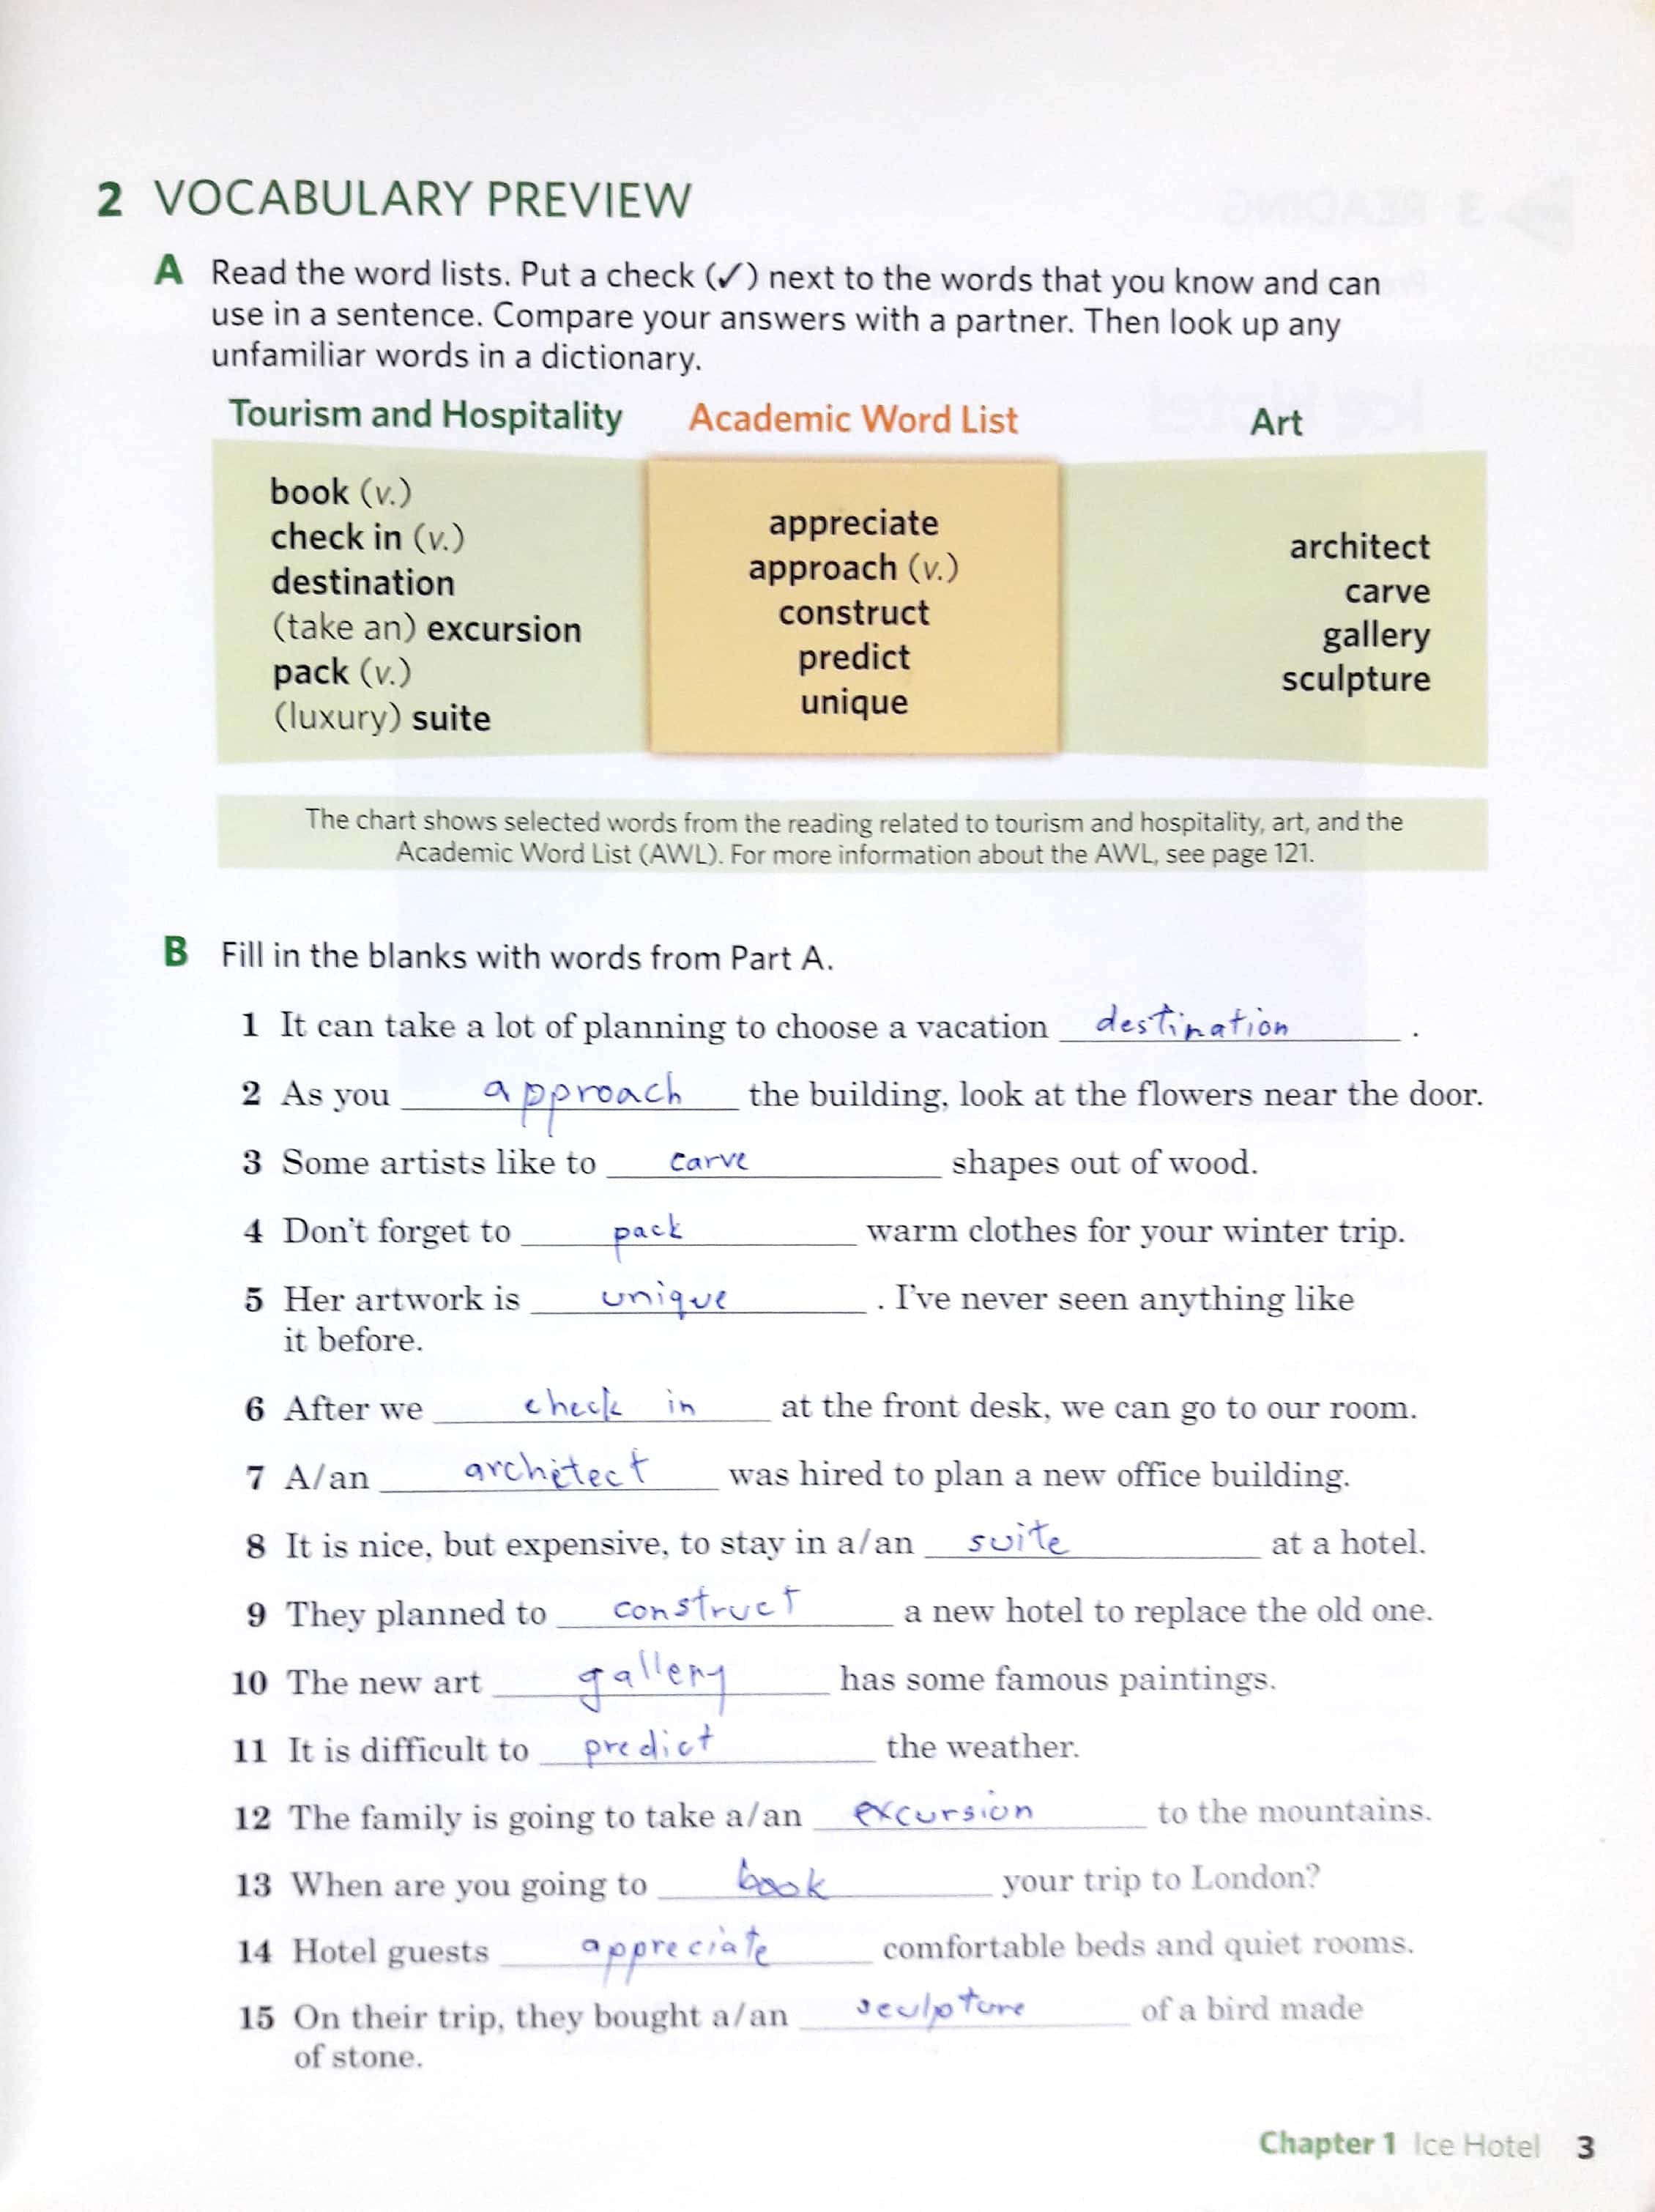 2 VOCABULARY PREVIEW
A Read the word lists. Put a check (✓) next to the words that you know and can
use in a sentence. Compare your answers with a partner. Then look up any
unfamiliar words in a dictionary.
Tourism and Hospitality
book (v.)
check in (v.)
destination
(take an) excursion
pack (v.)
(luxury) suite
Academic Word List
appreciate
approach (v.)
construct
predict
unique
Art
architect
carve
gallery
sculpture
The chart shows selected words from the reading related to tourism and hospitality, art, and the
Academic Word List (AWL). For more information about the AWL, see page 121.
B Fill in the blanks with words from Part A.
1 It can take a lot of planning to choose a vacation destination .
2 As you approach the building, look at the flowers near the door.
3 Some artists like to carve shapes out of wood.
4 Don't forget to pack warm clothes for your winter trip.
5 Her artwork is unique . I've never seen anything like
it before.
6 After we check in at the front desk, we can go to our room.
7 A/an architect was hired to plan a new office building.
8 It is nice, but expensive, to stay in a/an suite at a hotel.
9 They planned to construct a new hotel to replace the old one.
10 The new art gallery has some famous paintings.
11 It is difficult to predict the weather.
12 The family is going to take a/an excursion to the mountains.
13 When are you going to book your trip to London?
14 Hotel guests appreciate comfortable beds and quiet rooms.
15 On their trip, they bought a/an sculpture of a bird made
of stone.
Chapter 1 Ice Hotel 3